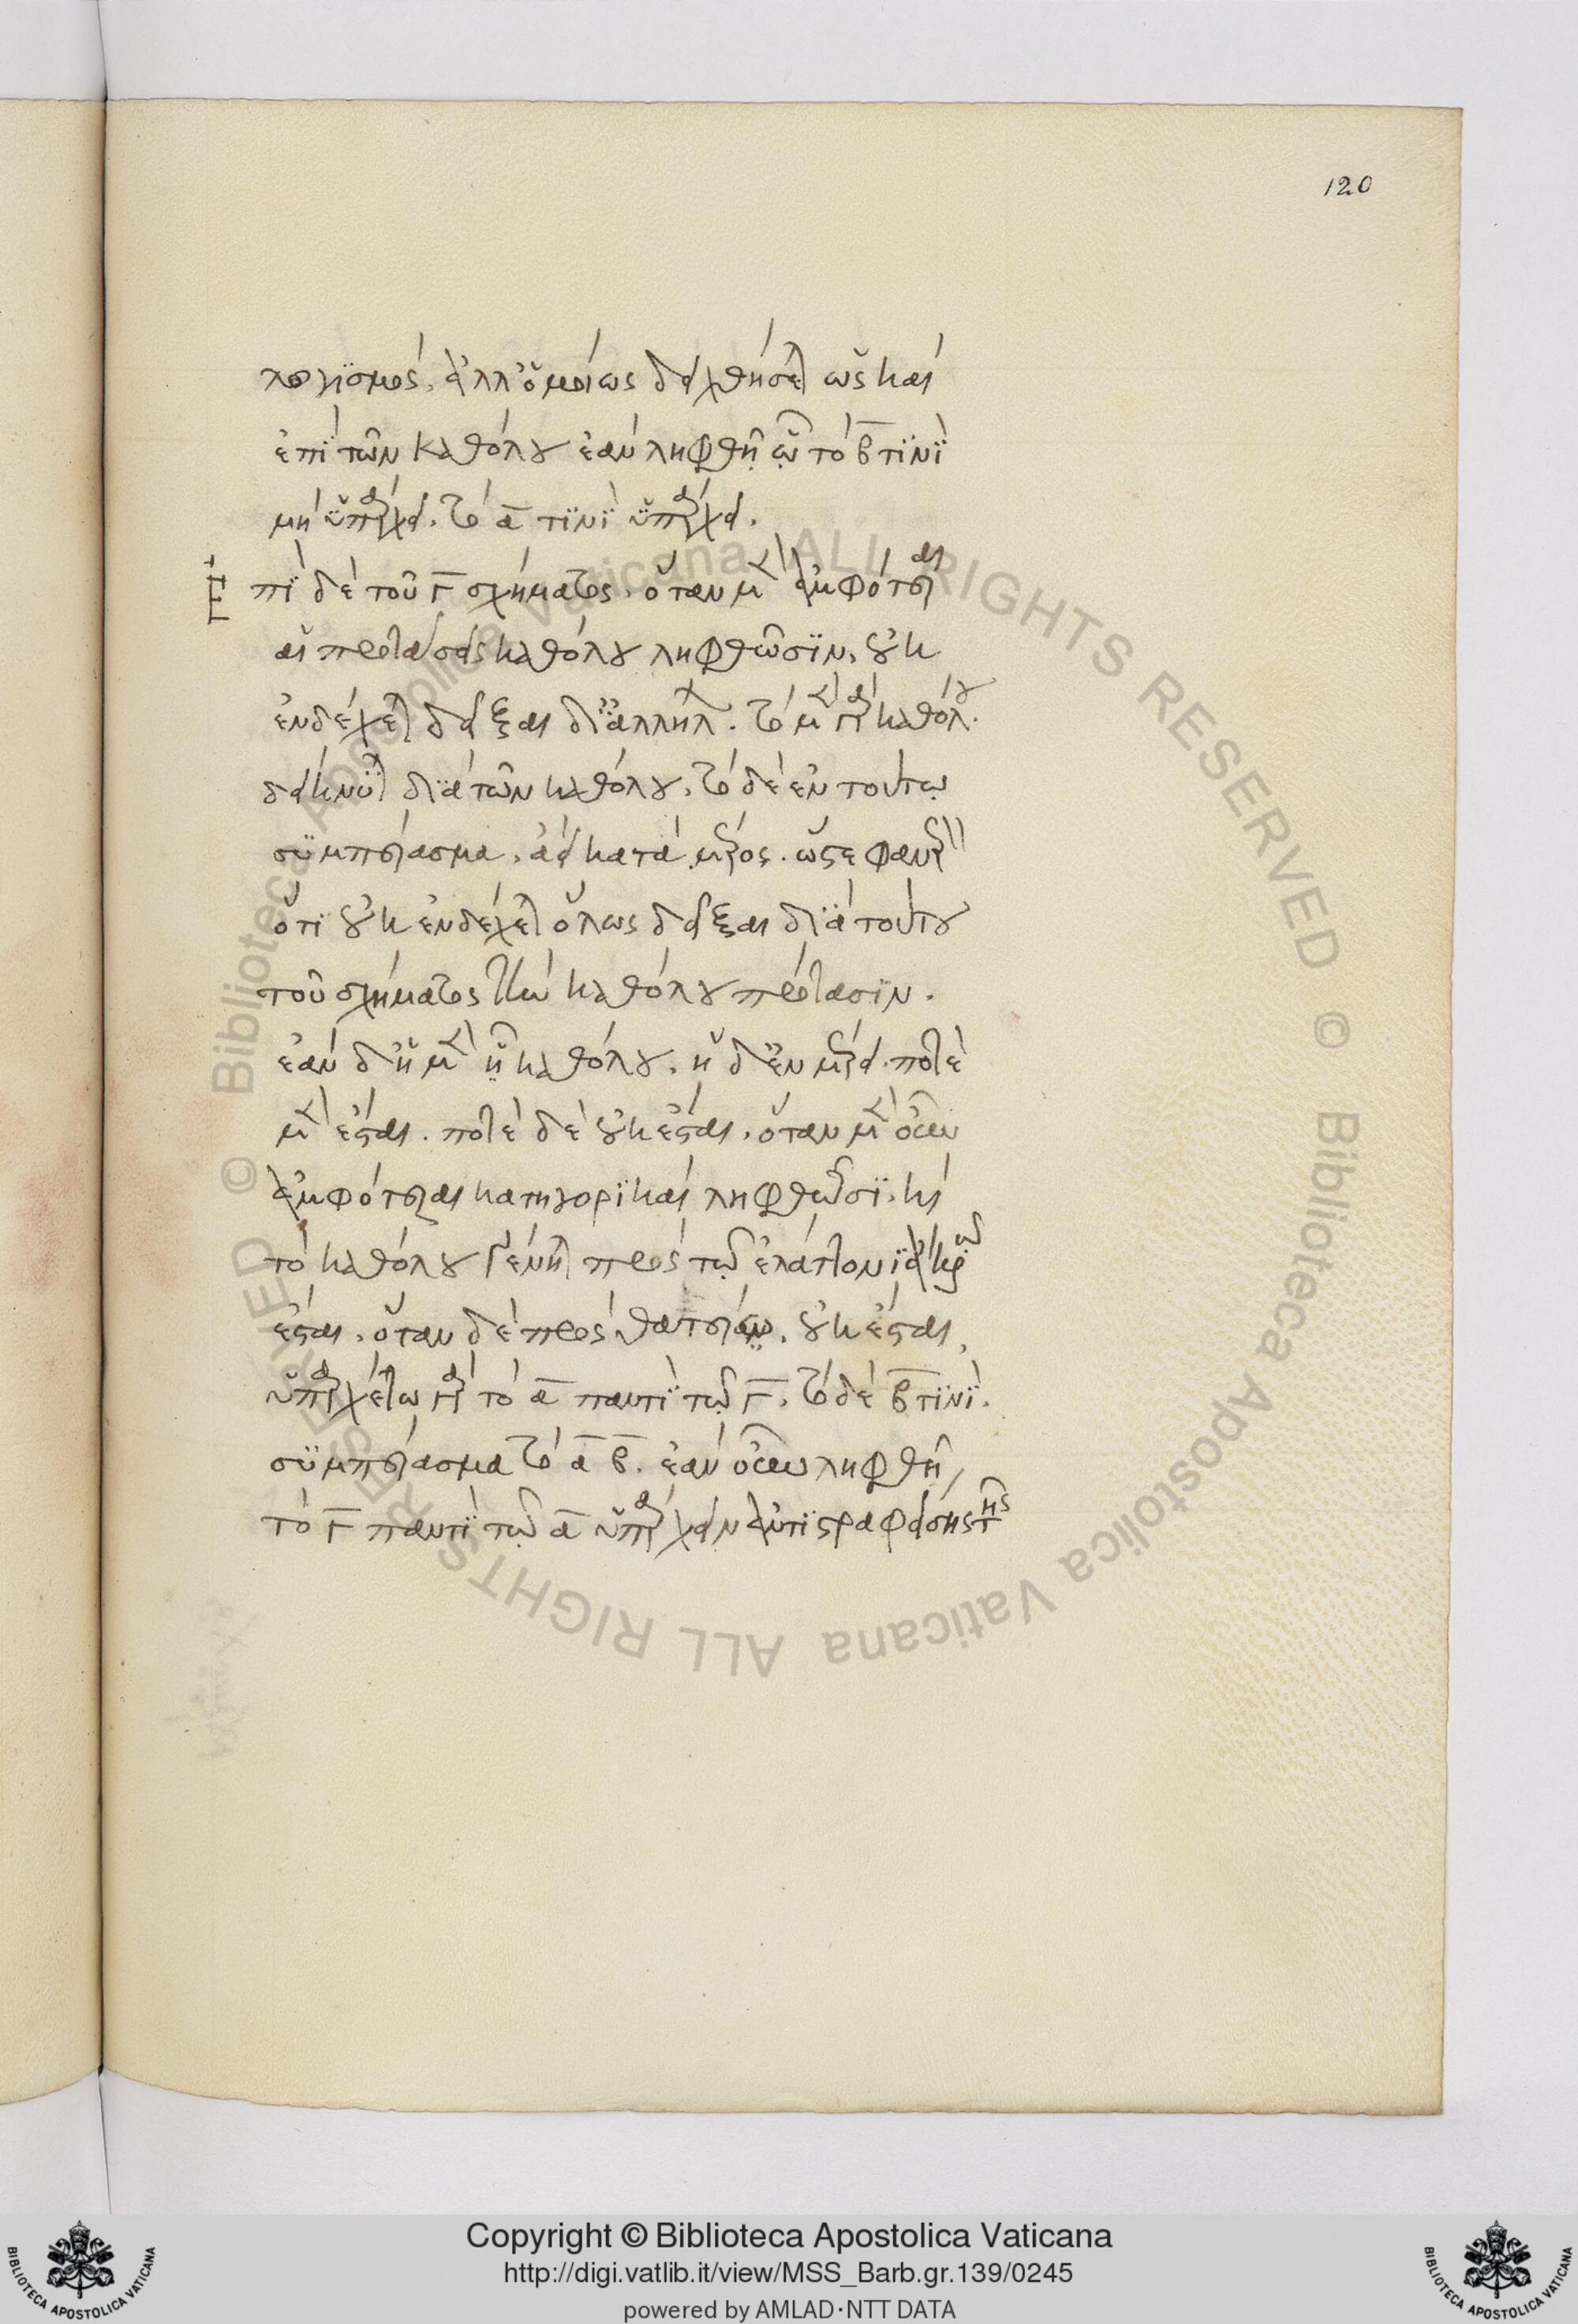 120
λογϊσμός. ἀλλ' ὁμοίως δειχθήσεται ὡς καὶ
ἐπὶ τῶν καθόλου ἐὰν ληφθῇ ᾧ τὸ β̅ τϊνὶ
μὴ ὑπάρχει. τὸ α̅ τϊνὶ ὑπάρχει.
Ἐπὶ δὲ τοῦ γ̅ σχήματος. ὅταν μὲν ἀμφότεραι
αἱ προτάσεις καθόλου ληφθῶσϊν, οὐκ
ἐνδέχεται δεῖξαι δι' ἀλλήλων. τὸ μὲν γὰρ καθόλου.
δείκνυται διὰ τῶν καθόλου. τὸ δὲ ἐν τούτῳ
συμπέρασμα. ἀεὶ κατὰ μέρος. ὥστε φανερὸν
ὅτι οὐκ ἐνδέχεται ὅλως δεῖξαι διὰ τούτου
τοῦ σχήματος τὴν καθόλου πρότασϊν.
ἐὰν δ' ἡ μὲν ᾖ καθόλου. ἡ δ' ἐν μέρει. ποτὲ
μὲν ἔσται. ποτὲ δὲ οὐκ ἔσται. ὅταν μὲν οὖν
ἀμφότεραι κατηγορϊκαὶ ληφθῶσϊ. καὶ
τὸ καθόλου γένηται πρὸς τῷ ἐλάττονϊ ἄκρῳ
ἔσται. ὅταν δὲ πρὸς θατέρῳ. οὐκ ἔσται,
ὑπαρχέτω γὰρ τὸ α̅ παντὶ τῷ γ̅. τὸ δὲ β̅ τϊνὶ.
συμπέρασμα τὸ α̅ β̅. ἐὰν οὖν ληφθῇ,
τὸ γ̅ παντὶ τῷ α̅ ὑπάρχειν ἀντϊστραφείσης τῆς
Copyright © Biblioteca Apostolica Vaticana
http://digi.vatlib.it/view/MSS_Barb.gr.139/0245
powered by AMLAD·NTT DATA
BIBLIOTECA APOSTOLICA VATICANA
BIBLIOTECA APOSTOLICA VATICANA
© Biblioteca Apostolica Vaticana ALL RIGHTS RESERVED © Biblioteca Apostolica Vaticana ALL RIGHTS RESERVED